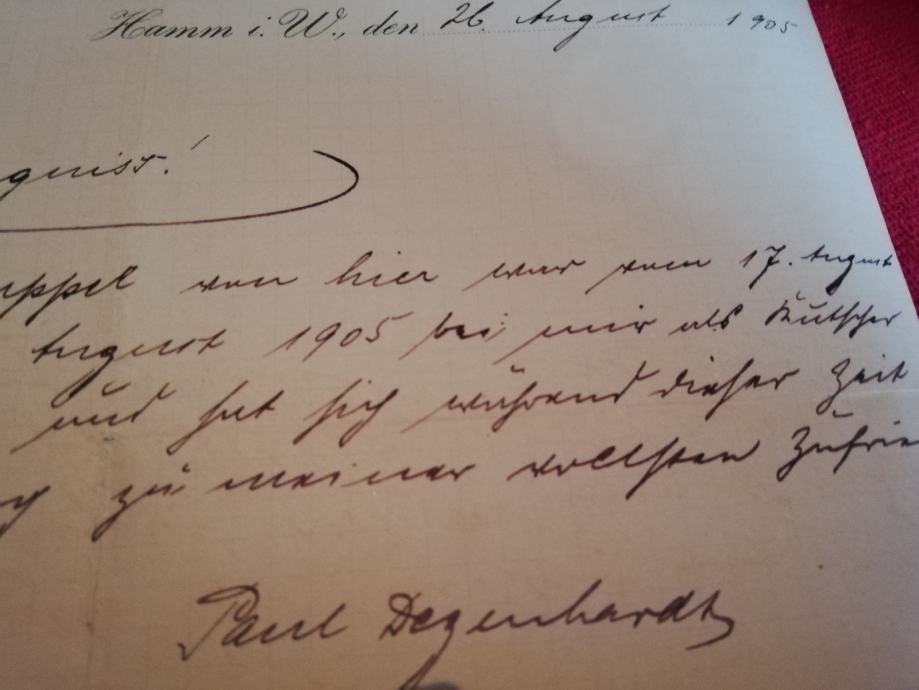 Hamm i. W., den 26. August 1905
gniss!
uppel von hier war vom 17. August
August 1905 bei mir als Kutscher
und hat sich während dieser Zeit
g zu meiner vollsten Zufrie
Paul Degenhardt